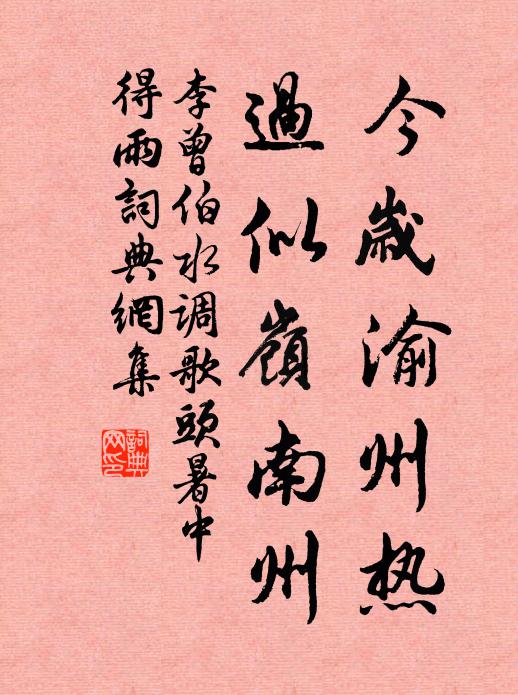 今歳渝州热
過似嶺南州
李曾伯水调歌頭暑中
得雨詞典網集
詞典
网印